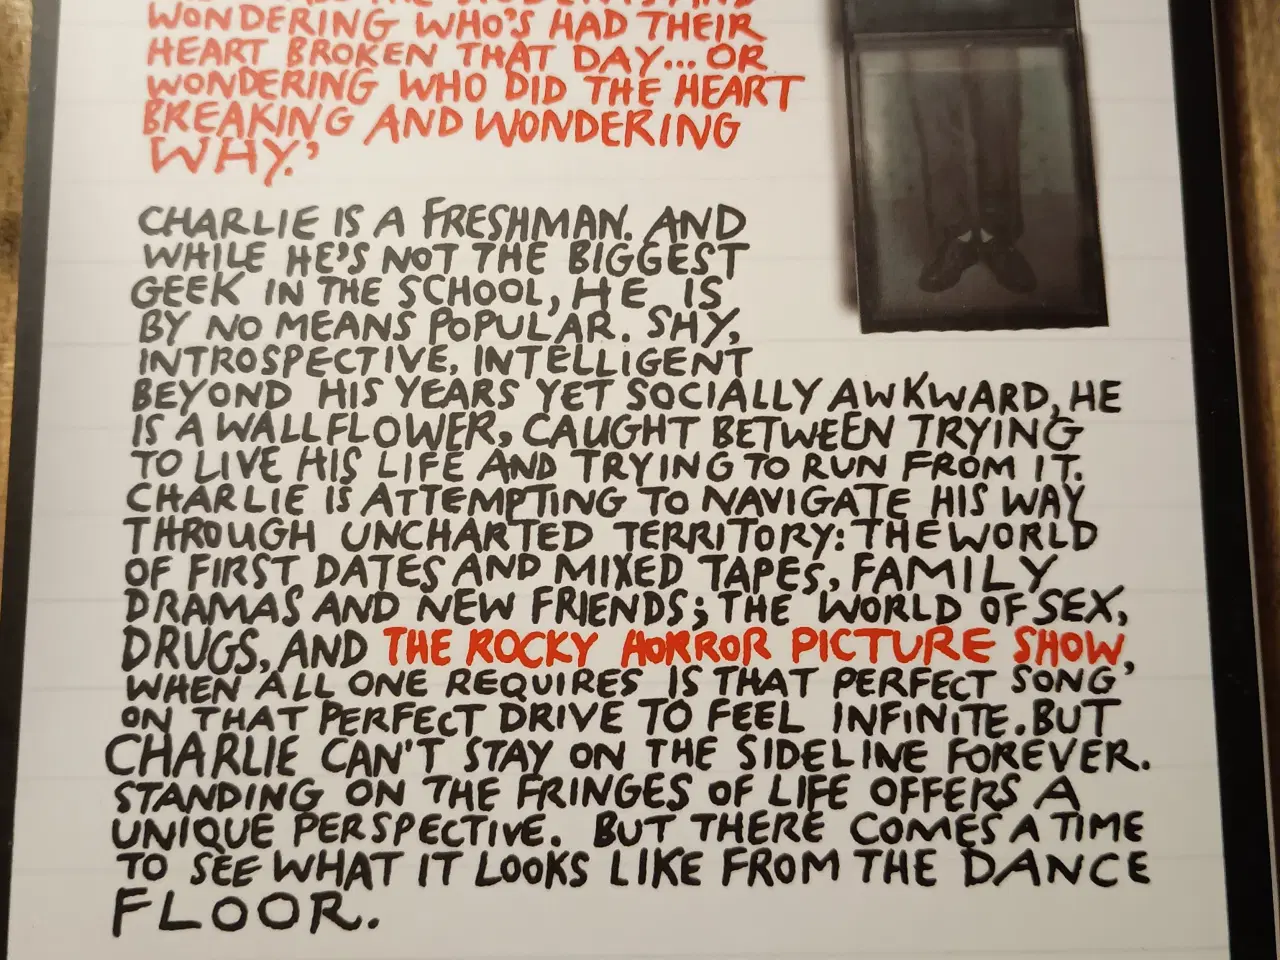 THE STUDENTS AND
WONDERING WHO'S HAD THEIR
HEART BROKEN THAT DAY... OR
WONDERING WHO DID THE HEART
BREAKING AND WONDERING
WHY.'
CHARLIE IS A FRESHMAN. AND
WHILE HE'S NOT THE BIGGEST
GEEK IN THE SCHOOL, HE IS
BY NO MEANS POPULAR. SHY,
INTROSPECTIVE, INTELLIGENT
BEYOND HIS YEARS YET SOCIALLY AWKWARD, HE
IS A WALLFLOWER, CAUGHT BETWEEN TRYING
TO LIVE HIS LIFE AND TRYING TO RUN FROM IT.
CHARLIE IS ATTEMPTING TO NAVIGATE HIS WAY
THROUGH UNCHARTED TERRITORY: THE WORLD
OF FIRST DATES AND MIXED TAPES, FAMILY
DRAMAS AND NEW FRIENDS; THE WORLD OF SEX,
DRUGS, AND THE ROCKY HORROR PICTURE SHOW,
WHEN ALL ONE REQUIRES IS THAT PERFECT SONG
ON THAT PERFECT DRIVE TO FEEL INFINITE. BUT
CHARLIE CAN'T STAY ON THE SIDELINE FOREVER.
STANDING ON THE FRINGES OF LIFE OFFERS A
UNIQUE PERSPECTIVE. BUT THERE COMES A TIME
TO SEE WHAT IT LOOKS LIKE FROM THE DANCE
FLOOR.